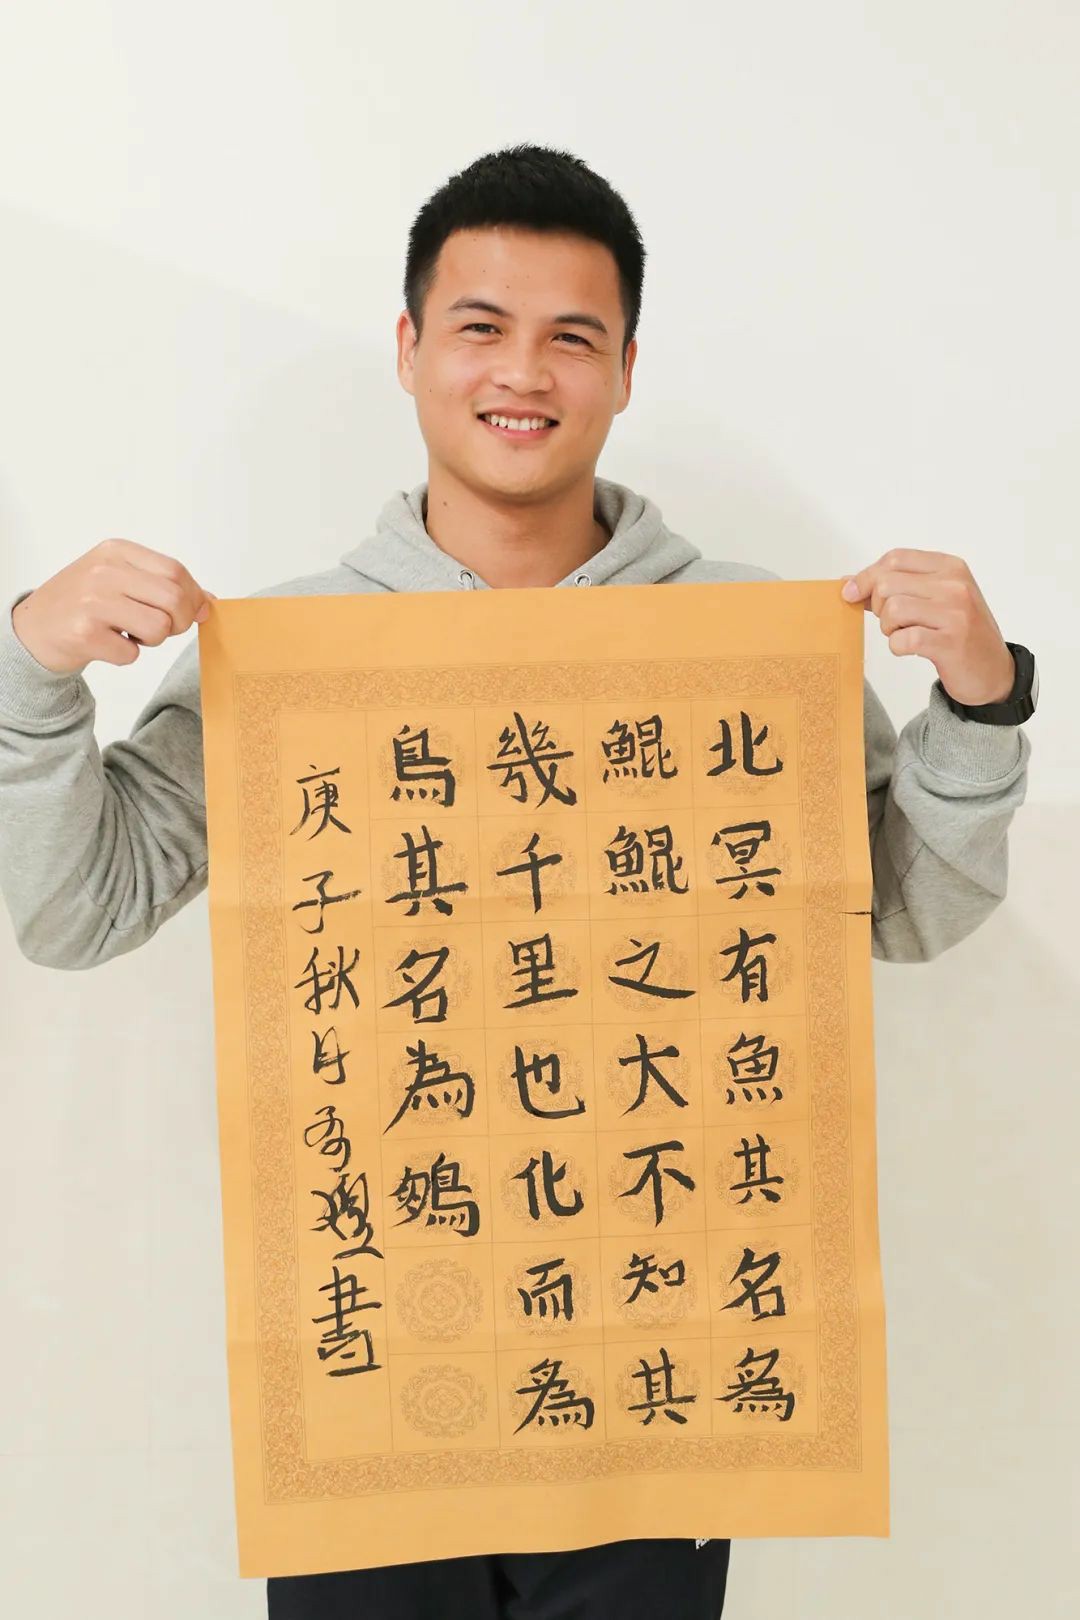 北冥有魚其名為
鯤鯤之大不知其
幾千里也化而為
鳥其名為鵷
庚子秋月 書